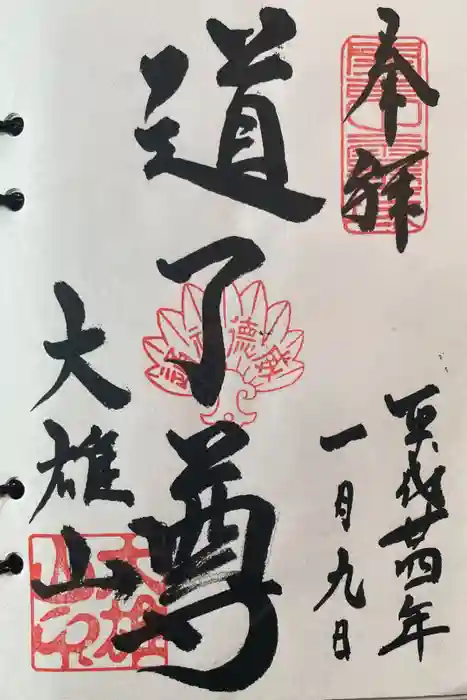 奉拝
平成廿四年
一月九日
道了尊
大雄山